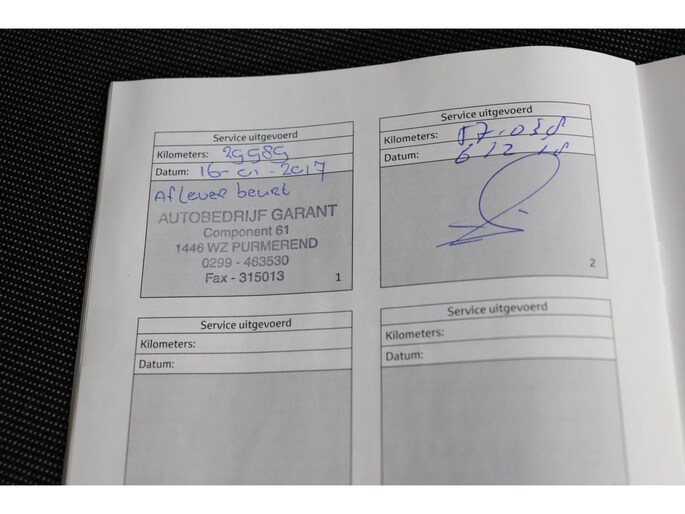 Service uitgevoerd
Kilometers: 29989
Datum: 16-01-2017
Aflever beurt
AUTOBEDRIJF GARANT
Component 61
1446 WZ PURMEREND
0299 - 463530
Fax - 315013
1
Service uitgevoerd
Kilometers:
Datum: 6 12 18
2
Service uitgevoerd
Kilometers:
Datum:
Service uitgevoerd
Kilometers:
Datum: